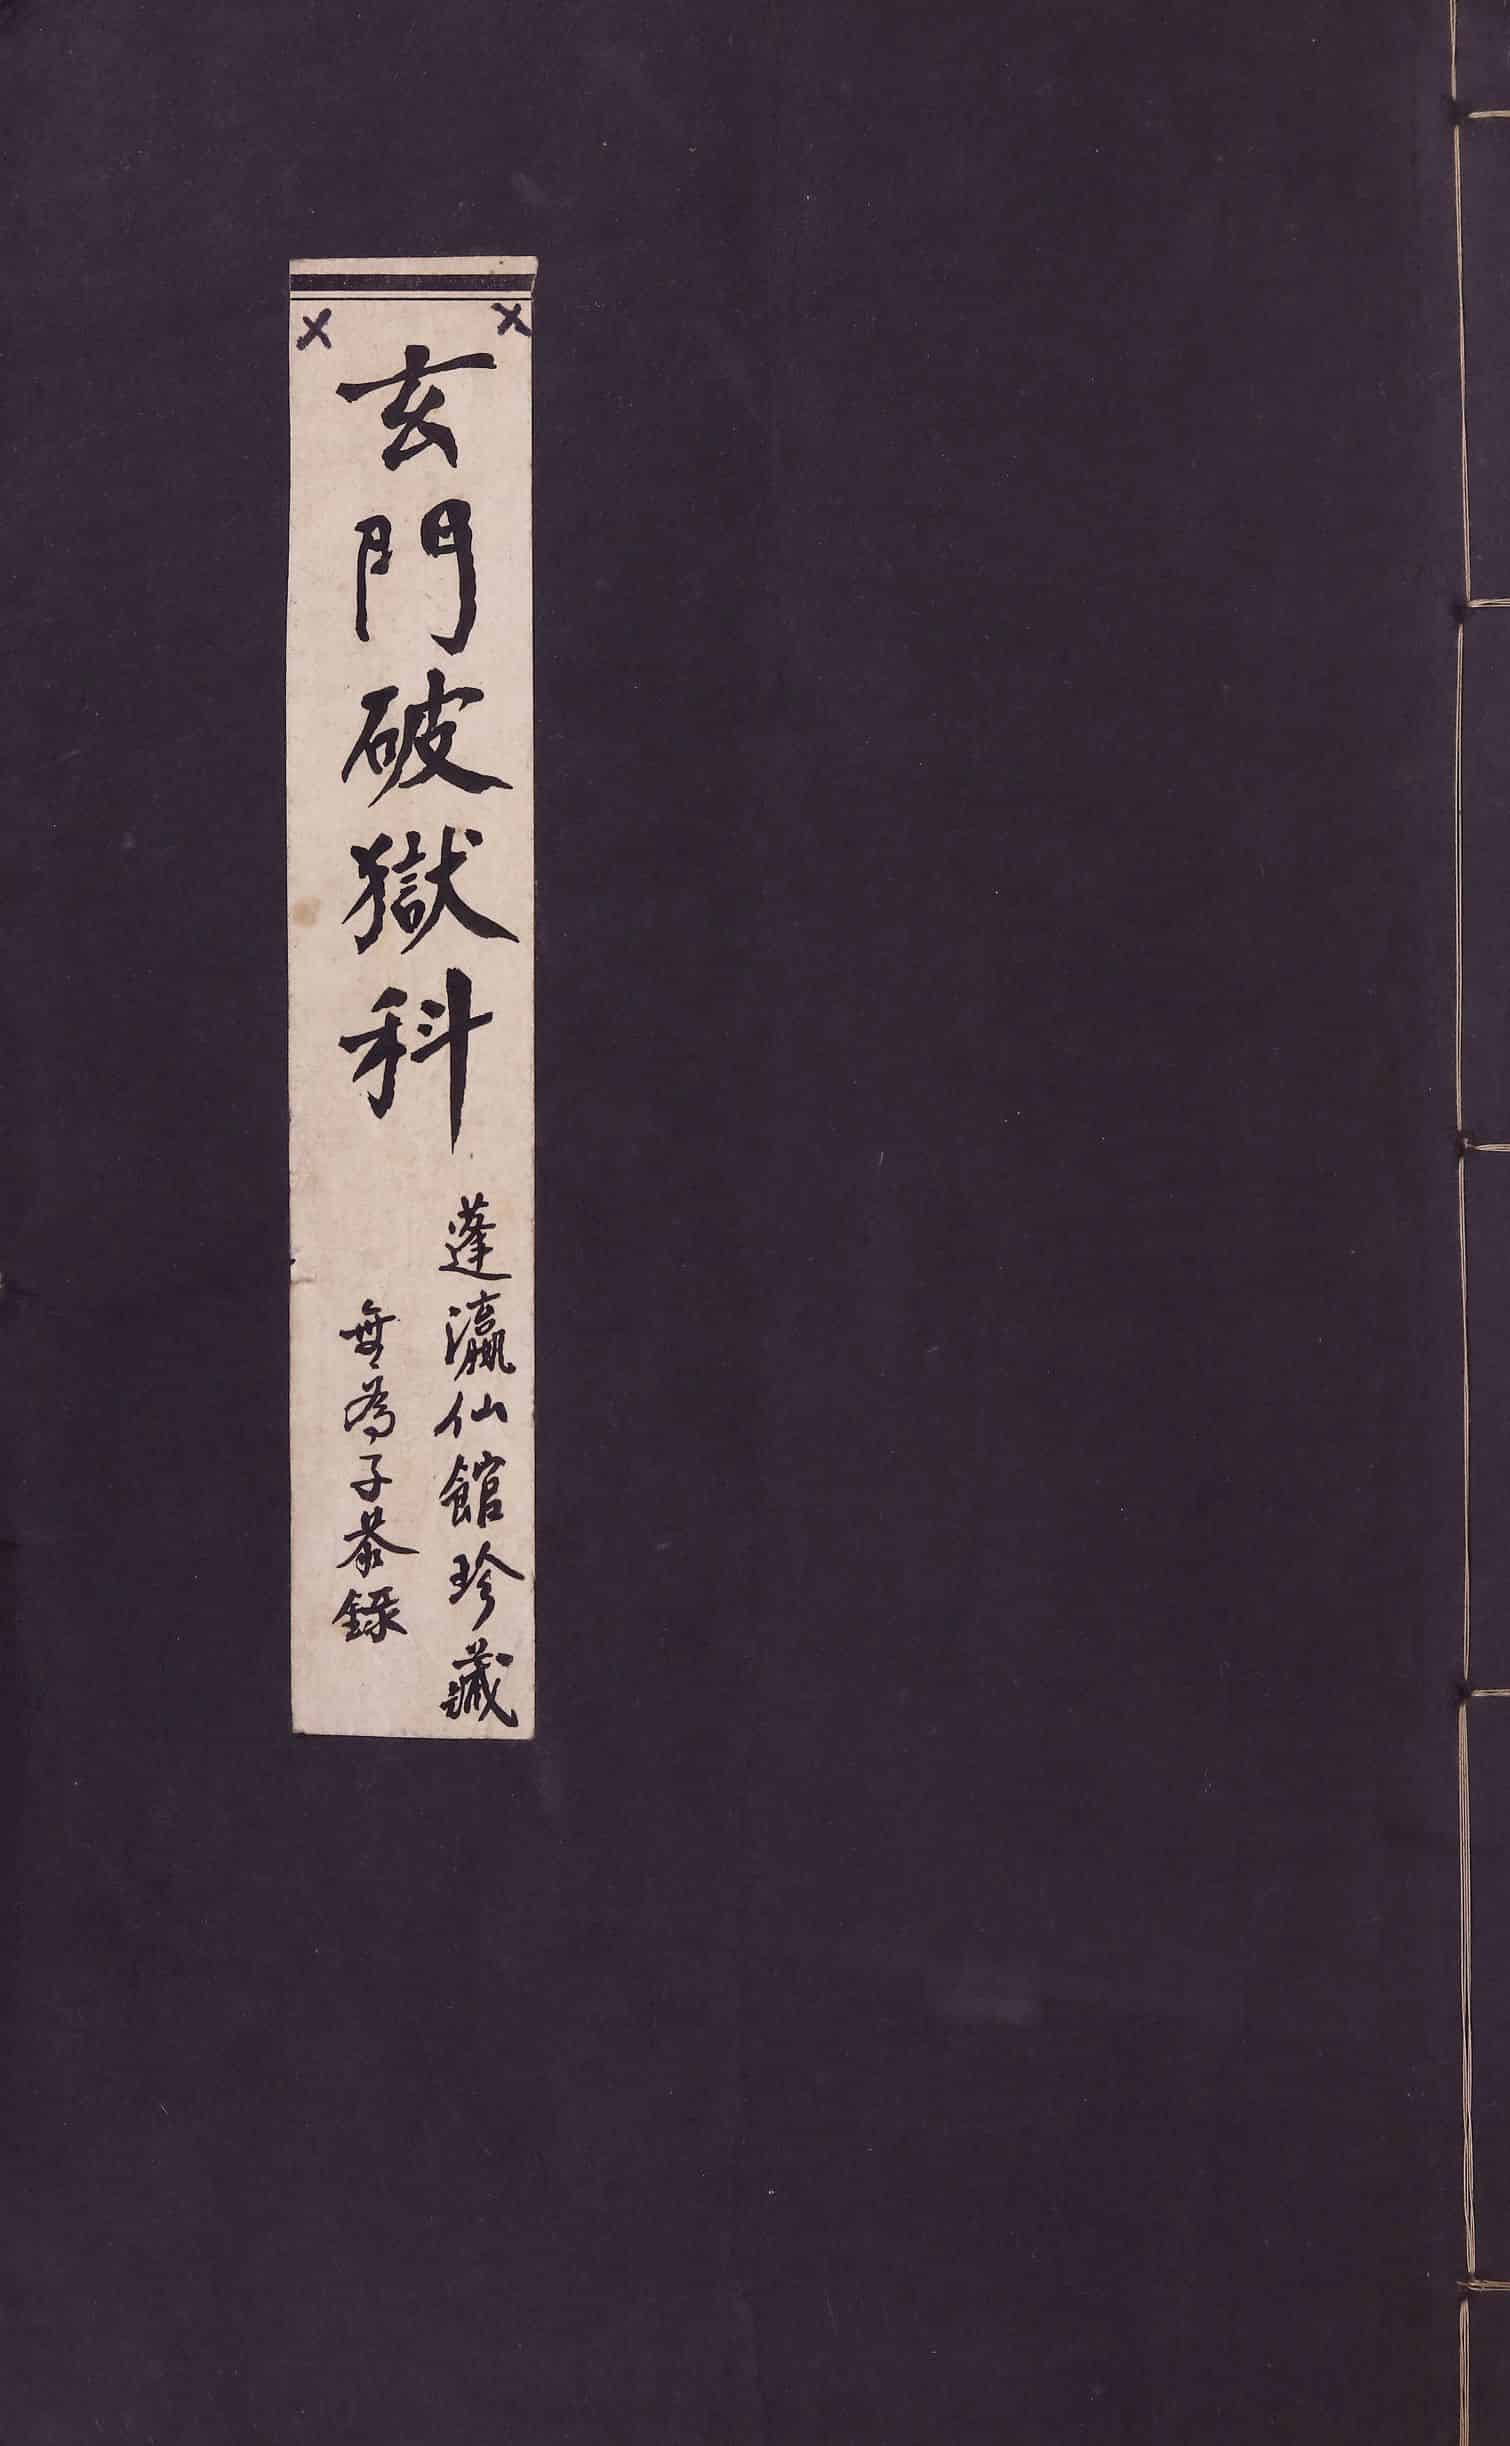 玄門破獄科
蓬瀛仙館珍藏
無為子恭錄